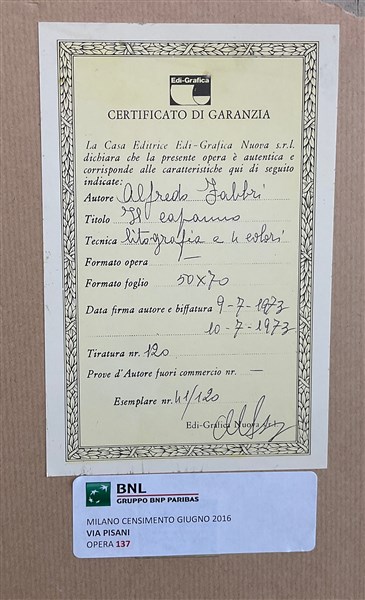 Edi-Grafica
CERTIFICATO DI GARANZIA
La Casa Editrice Edi-Grafica Nuova s.r.l.
dichiara che la presente opera è autentica e
corrisponde alle caratteristiche qui di seguito
indicate:
Autore Alfredo Fabbri
Titolo Il capanno
Tecnica litografia a 4 colori
Formato opera —
Formato foglio 50x70
Data firma autore e biffatura 9-7-1973
10-7-1973
Tiratura nr. 120
Prove d'Autore fuori commercio nr. —
Esemplare nr. 41/120
Edi-Grafica Nuova s.r.l.
BNL
GRUPPO BNP PARIBAS
MILANO CENSIMENTO GIUGNO 2016
VIA PISANI
OPERA 137